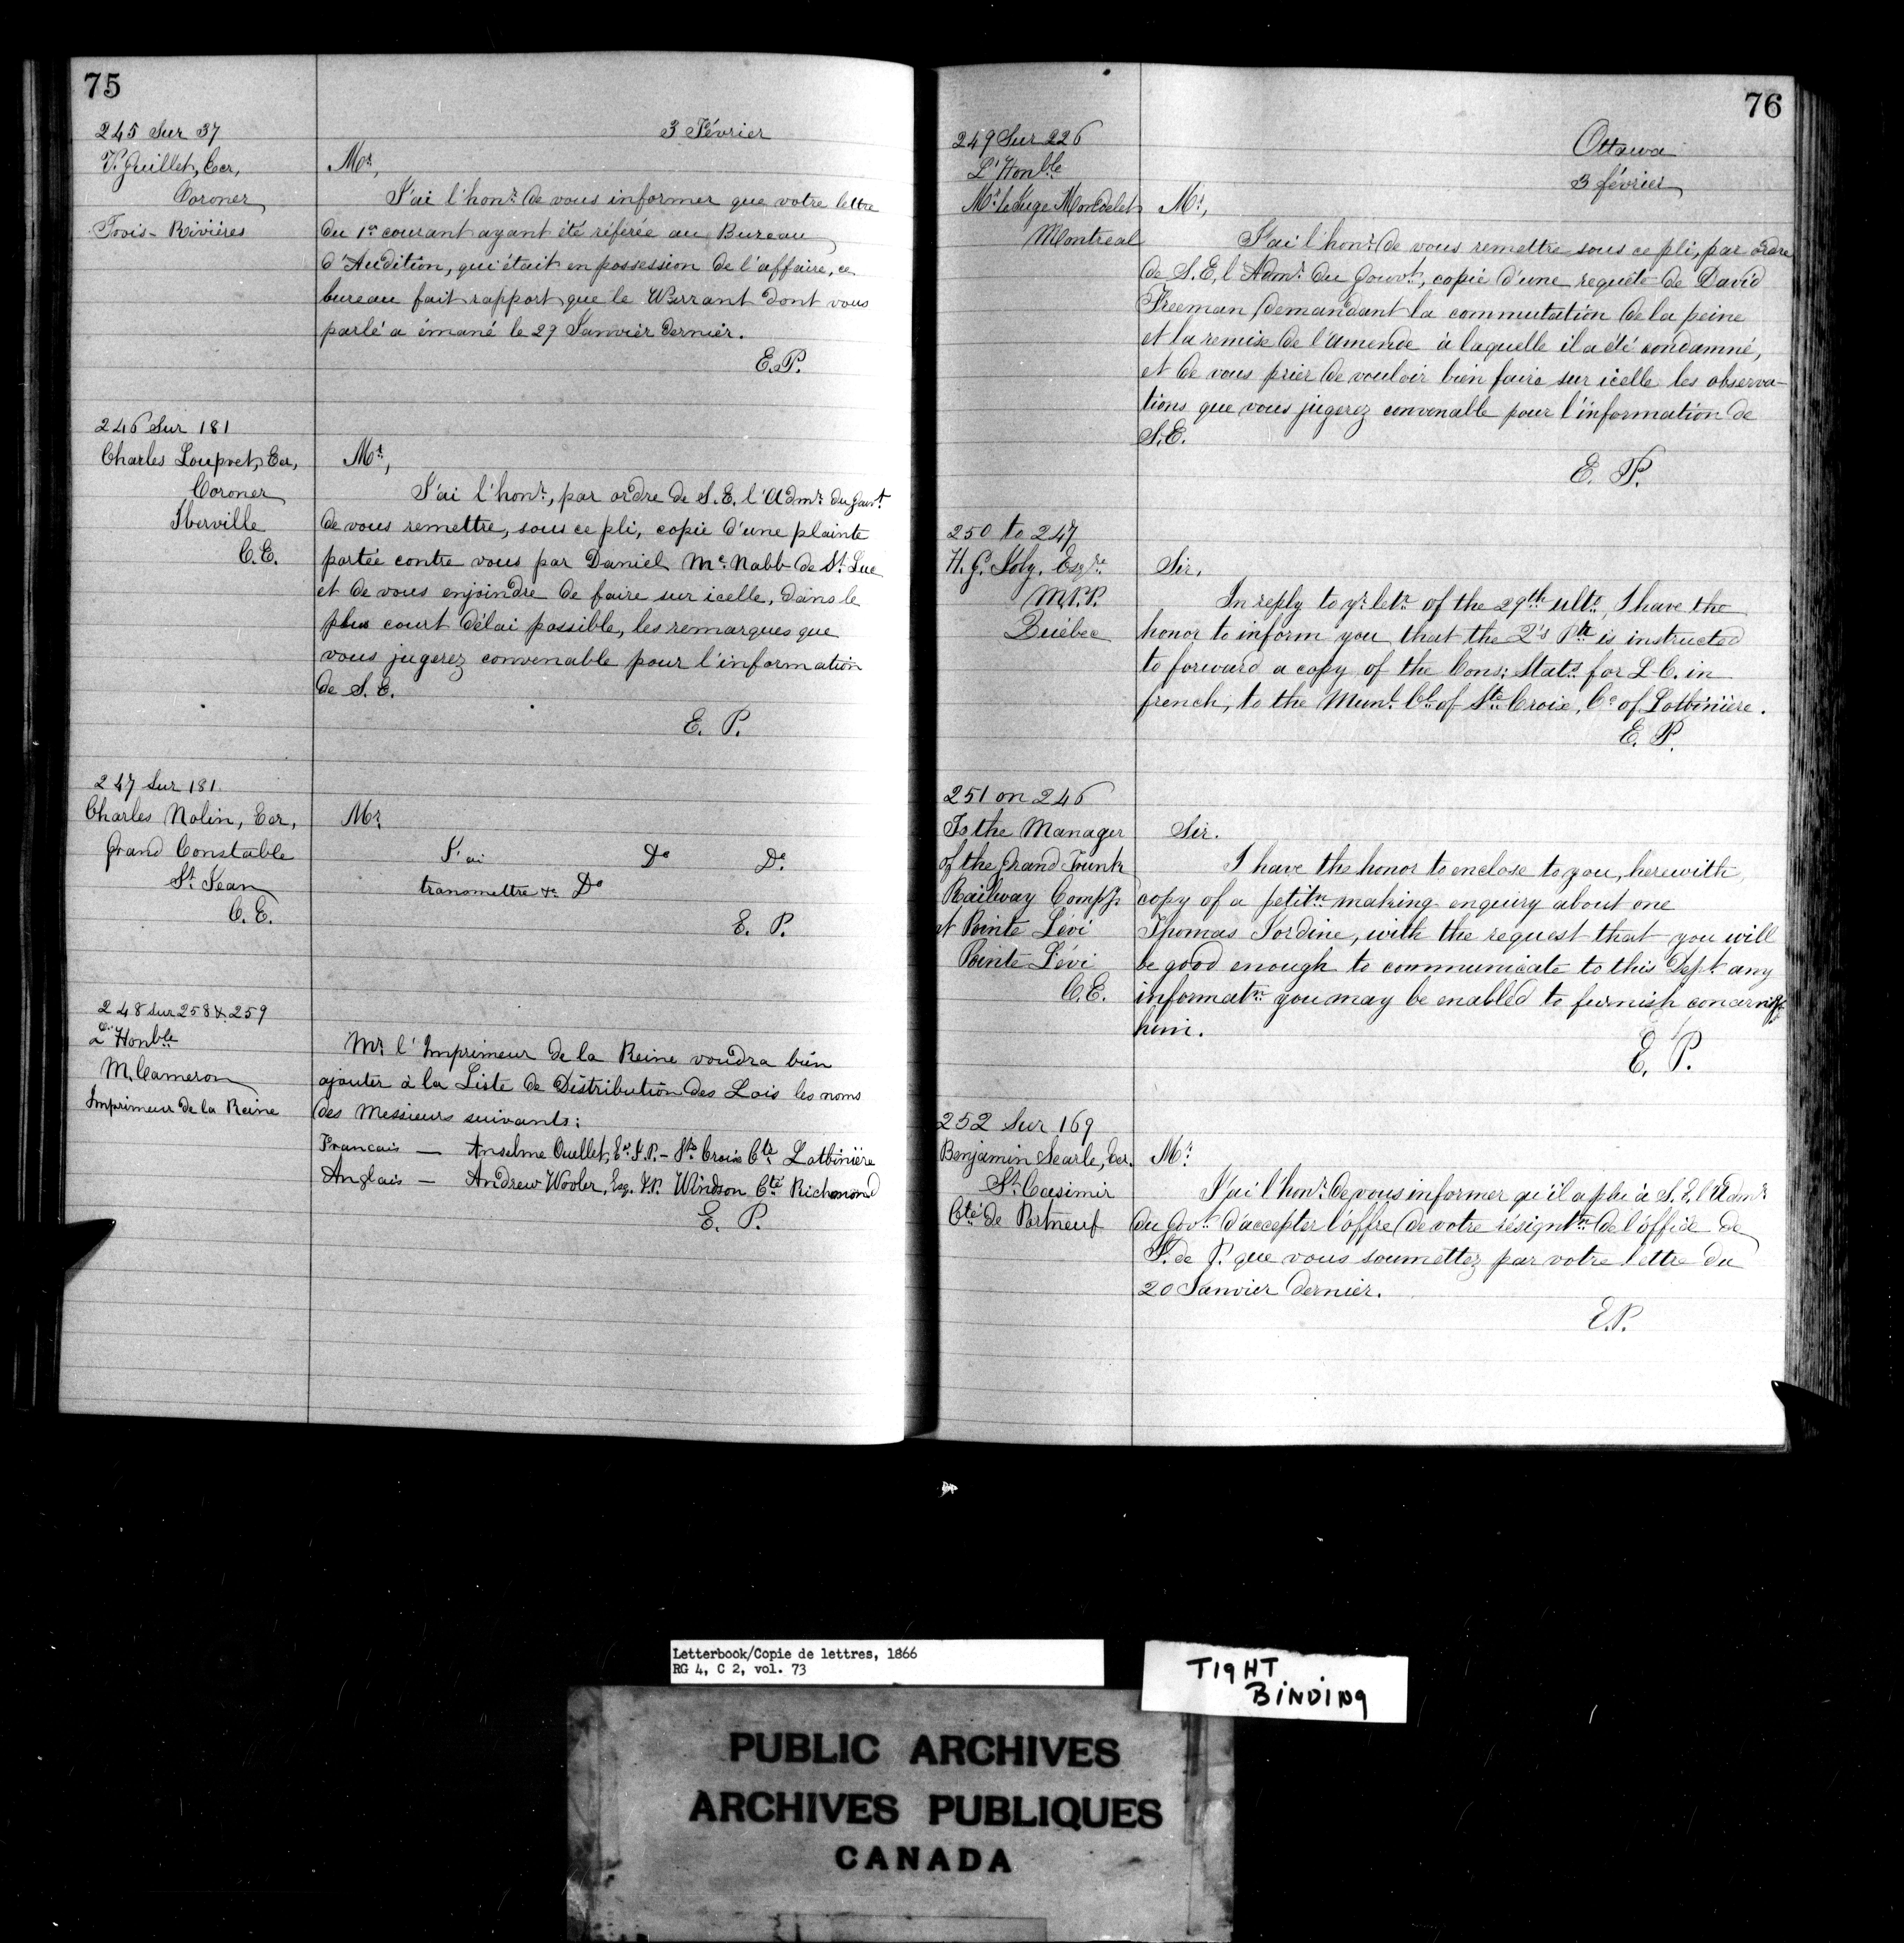 75
245 Sur 37
3 Février
V. Guillet, Ecr,
Coroner
Trois-Rivières
Mr,
J'ai l'honr. de vous informer que votre lettre
du 1er courant ayant été référée au Bureau
d'Audition, qui était en possession de l'affaire, ce
bureau fait rapport que le Warrant dont vous
parlé a émané le 29 Janvier dernier.
E.P.
246 Sur 181
Charles Loupret, Ecr,
Coroner
Iberville
C.E.
Mr,
J'ai l'honr, par ordre de S.E. l'Admr. du Gouvt.
de vous remettre, sous ce pli, copie d'une plainte
portée contre vous par Daniel McNabb de St. Luc
et de vous enjoindre de faire sur icelle, dans le
plus court délai possible, les remarques que
vous jugerez convenable pour l'information
de S.E.
E. P.
247 Sur 181.
Charles Nolin, Ecr,
Grand Constable
St. Jean
C.E.
Mr.
J'ai Do Do
transmettre &c. Do
E. P.
248 sur 258 & 259
L'Honble
M. Cameron
Imprimeur de la Reine
Mr. l'Imprimeur de la Reine voudra bien
ajouter à la Liste de Distribution des Lois les noms
des Messieurs suivants:
Francais — Anselme Ouellet, Er. J.P. - Ste Croix Cté Lotbinière
Anglais — Andrew Wooler, Esq. J.P. Windson Cté Richmond
E. P.
76
249 Sur 226
L'Honble
Mr. le Juge Mondelet
Montreal
Ottawa
3 février
Mr,
J'ai l'honr. de vous remettre sous ce pli, par ordre
de S.E, l'Admr. du Gouvt, copie d'une requête de David
Freeman demandant la commutation de la peine
et la remise de l'amende à laquelle il a été condamné,
et de vous prier de vouloir bien faire sur icelle les observa-
tions que vous jugerez convenable pour l'information de
S.E.
E. P.
250 to 247
H. G. Joly, Esqre.
M.P.P.
Québec
Sir,
In reply to yr. letr. of the 29th ulto, I have the
honor to inform you that the Q's Pr. is instructed
to forward a copy of the Cons: Stats. for L.C. in
french, to the Munl. Cl. of Ste Croix, Co. of Lotbinière.
E. P.
251 on 246
To the Manager
of the Grand Trunk
Railway Compy
at Pointe Lévi
Pointe Lévi
C.E.
Sir.
I have the honor to enclose to you, herewith,
copy of a petitn. making enquiry about one
Thomas Jordine, with the request that you will
be good enough to communicate to this Dept. any
informatn. you may be enabled to furnish concerng
him.
E. P.
252 Sur 169
Benjamin Searle, Ecr.
St. Casimir
Cté de Portneuf
Mr.
J'ai l'honr. de vous informer qu'il a plu à S.E. l'Admr.
du Govt. d'accepter l'offre de votre résigntn. de l'office de
J. de P. que vous soumettez par votre lettre du
20 Janvier dernier.
E.P.
Letterbook/Copie de lettres, 1866
RG 4, C 2, vol. 73
TIGHT
BINDING
PUBLIC ARCHIVES
ARCHIVES PUBLIQUES
CANADA